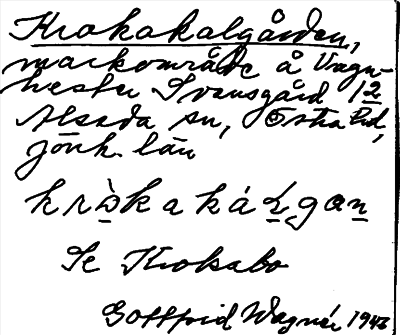 Krokakalgården,
markområde å Vagn-
hester Svensgård 12
Alseda sn, Östra hd,
Jönk. län
krɔ̀kaká
Se Krokabo
Gottfrid Wagnér 1943